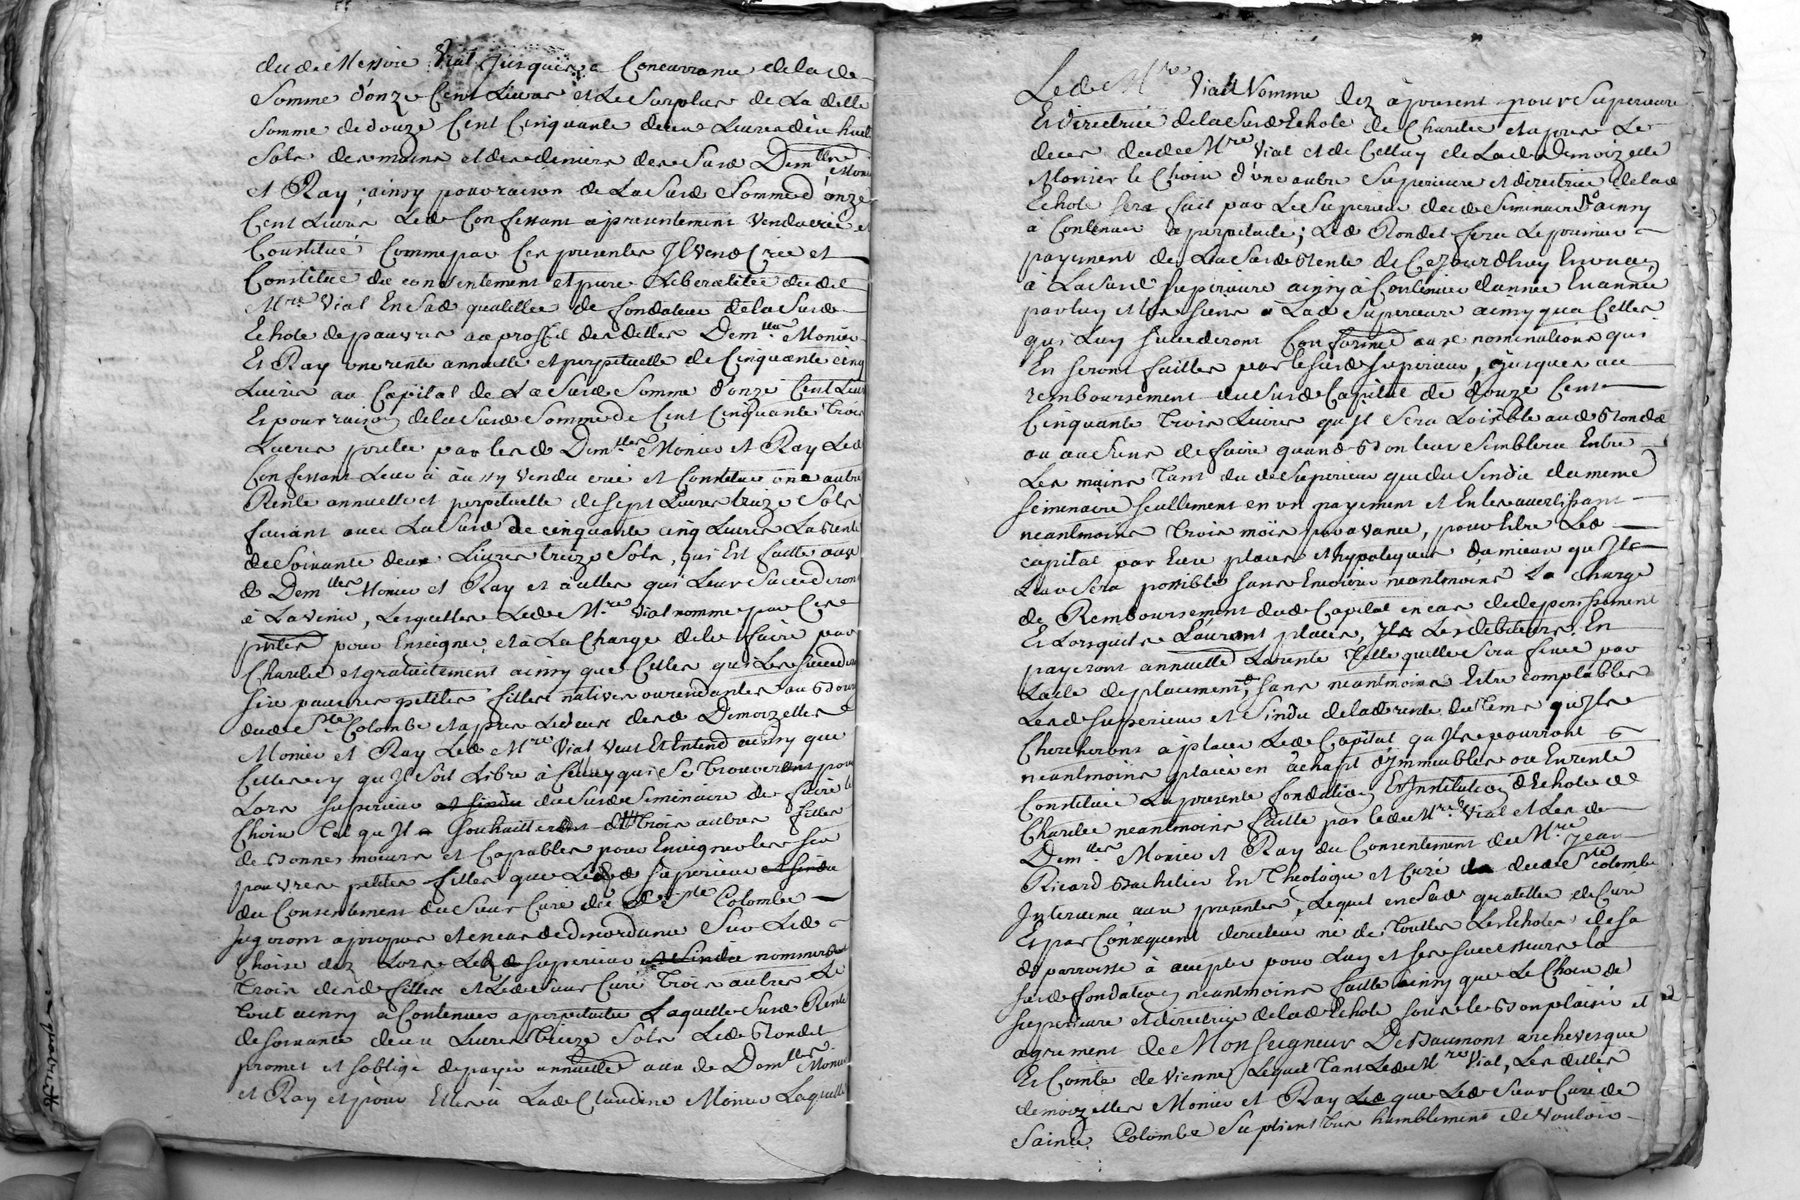 dud. Messire Vial jusques a Concurrance de lade
Somme d'onze Cent Livres et Le Surplus de La ditte
Somme de douze Cent Cinquante deux Livres dix huit
Sols des mains et des deniers des Susd Dem.lles Monier
et Ray; ainsy pour raison de La Susd Somme d'onze
Cent Livres Led Confessant a presentement Vendu crée et
Constitué Comme par Ces presentes Jl Vend Crée et
Constitue du consentement et pure Liberalitée dudit
Mre Vial En Sad qualittée de fondateur de la Susd
Echole de pauvres au proffit desdittes Dem.lles Monier
Et Ray une rente annuelle et perpetuelle de Cinquante cinq
Livres au Capital de La Susd Somme d'onze Cent Livres
Et pour raison de la Susd Somme de Cent Cinquante Trois
Livres prétée par lesd Dem.lles Monier et Ray Led
Confessant Leur à aussy Vendu crée et Constitué une autre
Rente annuelle et perpetuelle de Sept Livres treize Sols
faisant avec La Susd de cinquante cinq Livres La Rente
de Soixante deux Livres treize Sols, qui Est faitte aux
d Dem.lles Monier et Ray et à celles qui Leur Succederont
à Lavenir, Lesquelles Led Mre Vial nomme par Ces
pntes pour Enseigner, et à La Charge de le faire par
Charité et gratuitement ainsy que Celles qui Les Succederont
Six pauvres petites filles natives ou residantes au Bourg
dud Ste Colombe et apres Le deces desd Demoizelles
Monier et Ray Led Mre Vial Veut Et Entend ainsy que
Celles cy qu'Jl Soit Libre à Celuy qui Se Trouvera pour
Lors Superieur et Sindic du Susd Seminaire de faire le
Choix Tel qu'Jl Souhaittera de Trois autres filles
de Bonnes moeurs et Capables pour Enseigner les Six
pauvres petites filles que Led Superieur et Sindic
du Consentement du Sieur Curé dud Ste Colombe
Jugeront apropos et en cas de discordance Sur Led
Choix dez Lors Led Superieur et Sindic nommera
Trois desd filles et Led Sieur Curé Trois autres Le
tout ainsy a Continuer a perpetuité Laquelle Susd Rente
de Soixante deux Livres treize Sols Led Rondet
promet et S'oblige de payer annuellement aux d Dem.lles Monier
et Ray et pour Elles à Lad Claudine Monier Laquelle
Led Mre Vial Nomme dez àpresent pour Superieure
Et directrice de la Susd Echole de Charité et apres Le
deces dud Mre Vial et de Celluy de Lad Demoizelle
Monier le Choix d'une autre Superieure et directrice de lad
Echole Sera fait par Le Superieur dud Seminaire ainsy
a Continuer a perpetuité; Led Rondet fera Le premier
payement de La Susd Rente de Cejourdhuy En un an
à La Susd Superieure ainsy à Continuer d'année En année
par luy et les Siens à Lad Superieure ainsy qua Celles
qui Luy Succederont Conformé aux nominations qui
En Seront faittes par le Susd Superieur, jusques au
remboursement du Susd Capital de douze Cent
Cinquante Trois Livres qu'Jl Sera Loisible aud Rondet
ou aux Siens de faire quand Bon leur Semblera Entre
Les mains Tant dud Superieur que du Sindic du meme
Seminaire Seullement en un payement et En les avertissant
neantmoins Trois mois par avance, pour Etre Led
capital par Eux placé et hypotequé du mieux qu'Jls
Leur Sera possible Sans Encourir neantmoins La charge
de Remboursement dud Capital en cas de deperissement
Et Lorsqu'ils L'auront placés, Les debiteurs En
payeront annuellement La rente Telle quelle Sera fixée par
Lacte de placement, Sans neantmoins Estre comptables
Lesd Superieur et Sindic de lad rente du Tems qu'Jls
Chercheront à placer Led Capital qu'Jls pourront
neantmoins placer en achapt d'Immeubles ou En rente
Constituée La presente fondation Et Institution d'Echole de
Charité neantmoins faitte par led Mre Vial et Lesd
Dem.lles Monier et Ray du Consentement de Mre Jean
Ricard Bachelier En Theologie et Curé dud Ste Colombe
Intervenu aux presentes, Lequel en Sad qualittée de Curé
Et par Consequent directeur né de Touttes Les Echoles de Sa
d parroisse à accepté pour Luy et Ses Successeurs La
Susd fondation neantmoins faitte ainsy que Le Choix de
Superieure et directrice de lad Echole Sous le Bon plaisir et
agrement de Monseigneur De Saumont archevesque
Et Comte de Vienne Lequel Tant Led Mre Vial, Lesdittes
demoizelles Monier et Ray que Led Sieur Curé de
Sainte Colombe Suplient Tres humblement de Vouloir